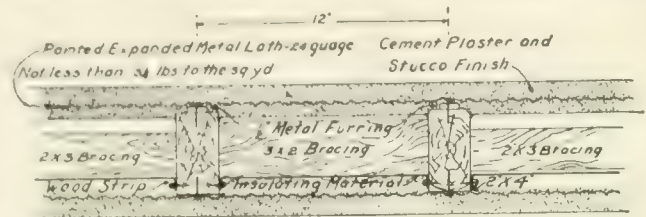 12"
Painted Expanded Metal Lath-24 guage
Not less than 3.4 lbs to the sq yd
Cement Plaster and
Stucco Finish
Metal Furring
2 X 3 Bracing
3 x 2 Bracing
2 X 3 Bracing
Wood Strip
Insulating Materials
2 X 4"